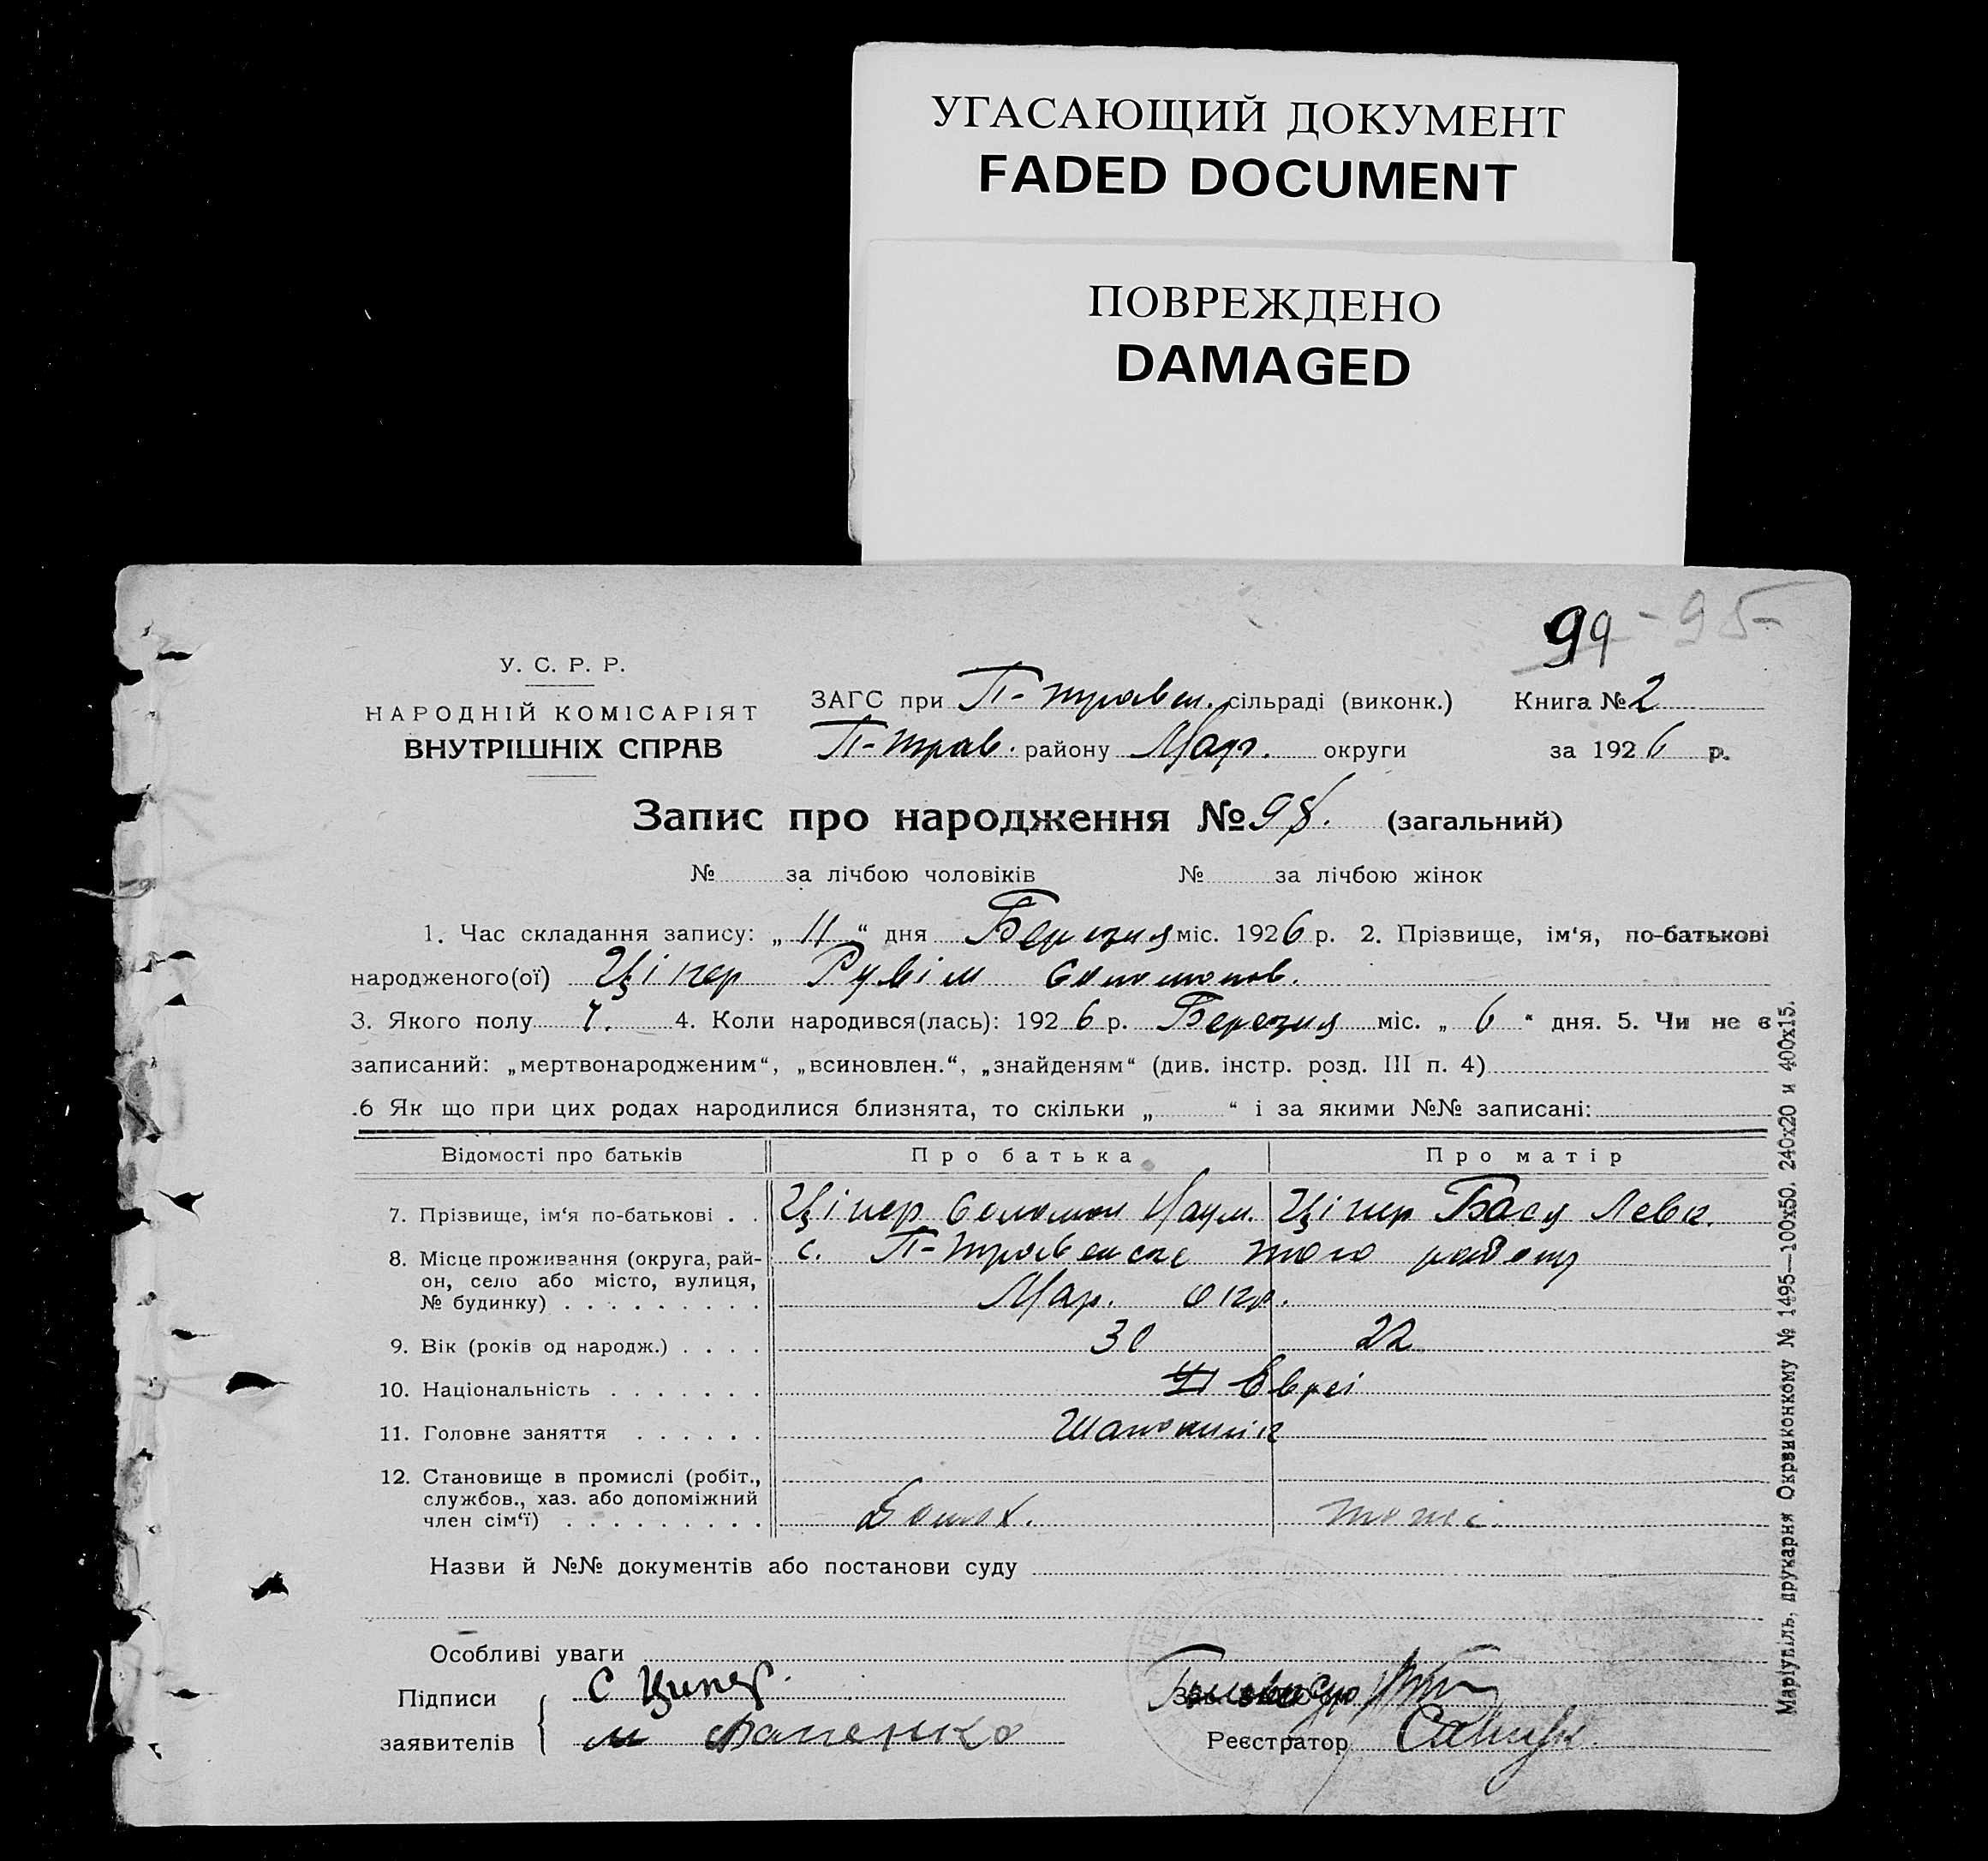 УГАСАЮЩИЙ ДОКУМЕНТ
FADED DOCUMENT
ПОВРЕЖДЕНО
DAMAGED
99 - 95 -
У. С. Р. Р.
НАРОДНІЙ КОМІСАРІЯТ
ВНУТРІШНІХ СПРАВ
ЗАГС при П-травен. сільраді (виконк.) Книга № 2
П-трав. району Мар. округи за 1926 р.
Запис про народження № 98. (загальний)
№ за лічбою чоловіків № за лічбою жінок
1. Час складання запису: „ 11 “ дня Березня міс. 1926 р. 2. Прізвище, ім‘я, по-батькові
народженого(ої) Ціпер Рувім Соломонов.
3. Якого полу Ч. 4. Коли народився(лась): 1926 р. Березня міс. „ 6 “ дня. 5. Чи не є
записаний: „мертвонародженим“, „всиновлен.“, „знайденям“ (див. інстр. розд. III п. 4)
.6 Як що при цих родах народилися близнята, то скільки „ “ і за якими №№ записані:
Відомості про батьків Про батька Про матір
7. Прізвище, ім‘я по-батькові . . Ціпер Соломон Наум. Ціпер Бася Левк.
8. Місце проживання (округа, рай-
он, село або місто, вулиця,
№ будинку) . . . . . . . . .
с. П-травенске того району
Мар. окр.
9. Вік (років од народж.) . . . . 30 22
10. Національність . . . . . . . Євреі
11. Головне заняття . . . . . .
12. Становище в промислі (робіт.,
службов., хаз. або допоміжний
член сім‘ї) . . . . . . . . .
Назви й №№ документів або постанови суду
Особливі уваги
Підписи
заявителів
С Ципер.
м Фапенко
Реєстратор
Маріупіль, друкарня Окрвиконкому № 1495—100х50. 240х20 и 400х15.